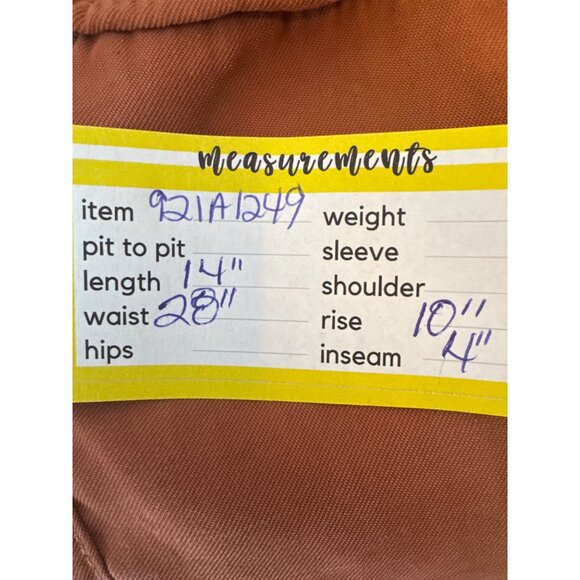 measurements
item 921A1249 weight
pit to pit sleeve
length 14" shoulder
waist 28" rise 10"
hips inseam 4"